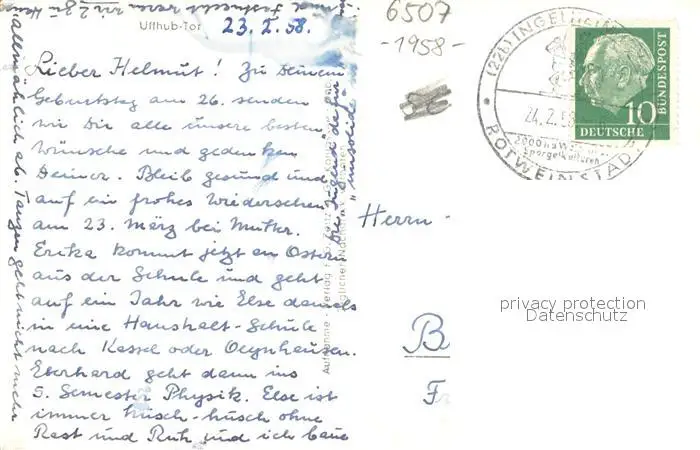 Uffhub-Tor
23. 2. 58.
Lieber Helmut! Zu Deinem
Geburtstag am 26. senden
wir Dir alle unsere besten
Wünsche und gedenken
Deiner. Bleib gesund und
auf ein frohes Wiedersehen
am 23. März bei Mutter.
Erika kommt jetzt an Ostern
aus der Schule und geht
auf ein Jahr wie Else damals
in eine Haushalt-Schule
nach Kassel oder Oeynhausen.
Eberhard geht dann ins
5. Semester Physik. Else ist
immer husch-husch ohne
Rast und Ruh und ich baue
allmählich ab. Tanzen geht nicht mehr
die Jugend dafür
unsolide
Aufnahme - Verlag
6507
-1958-
(22b) INGELHEIM
24.2.58
Spargelkulturen
ROTWEINSTADT
10
DEUTSCHE
BUNDESPOST
Herrn
B
Fr
privacy protection
Datenschutz